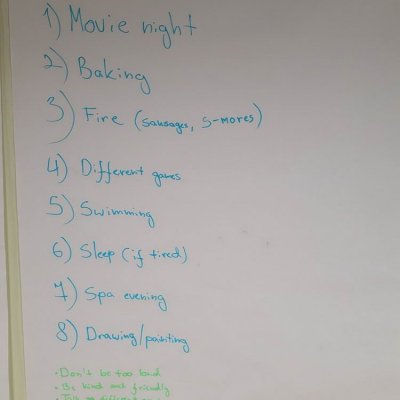 1) Movie night
2) Baking
3) Fire (sausages, S-mores)
4) Different games
5) Swimming
6) Sleep (if tired)
7) Spa evening
8) Drawing/painting
• Don't be too loud
• Be kind and friendly
• Talk different